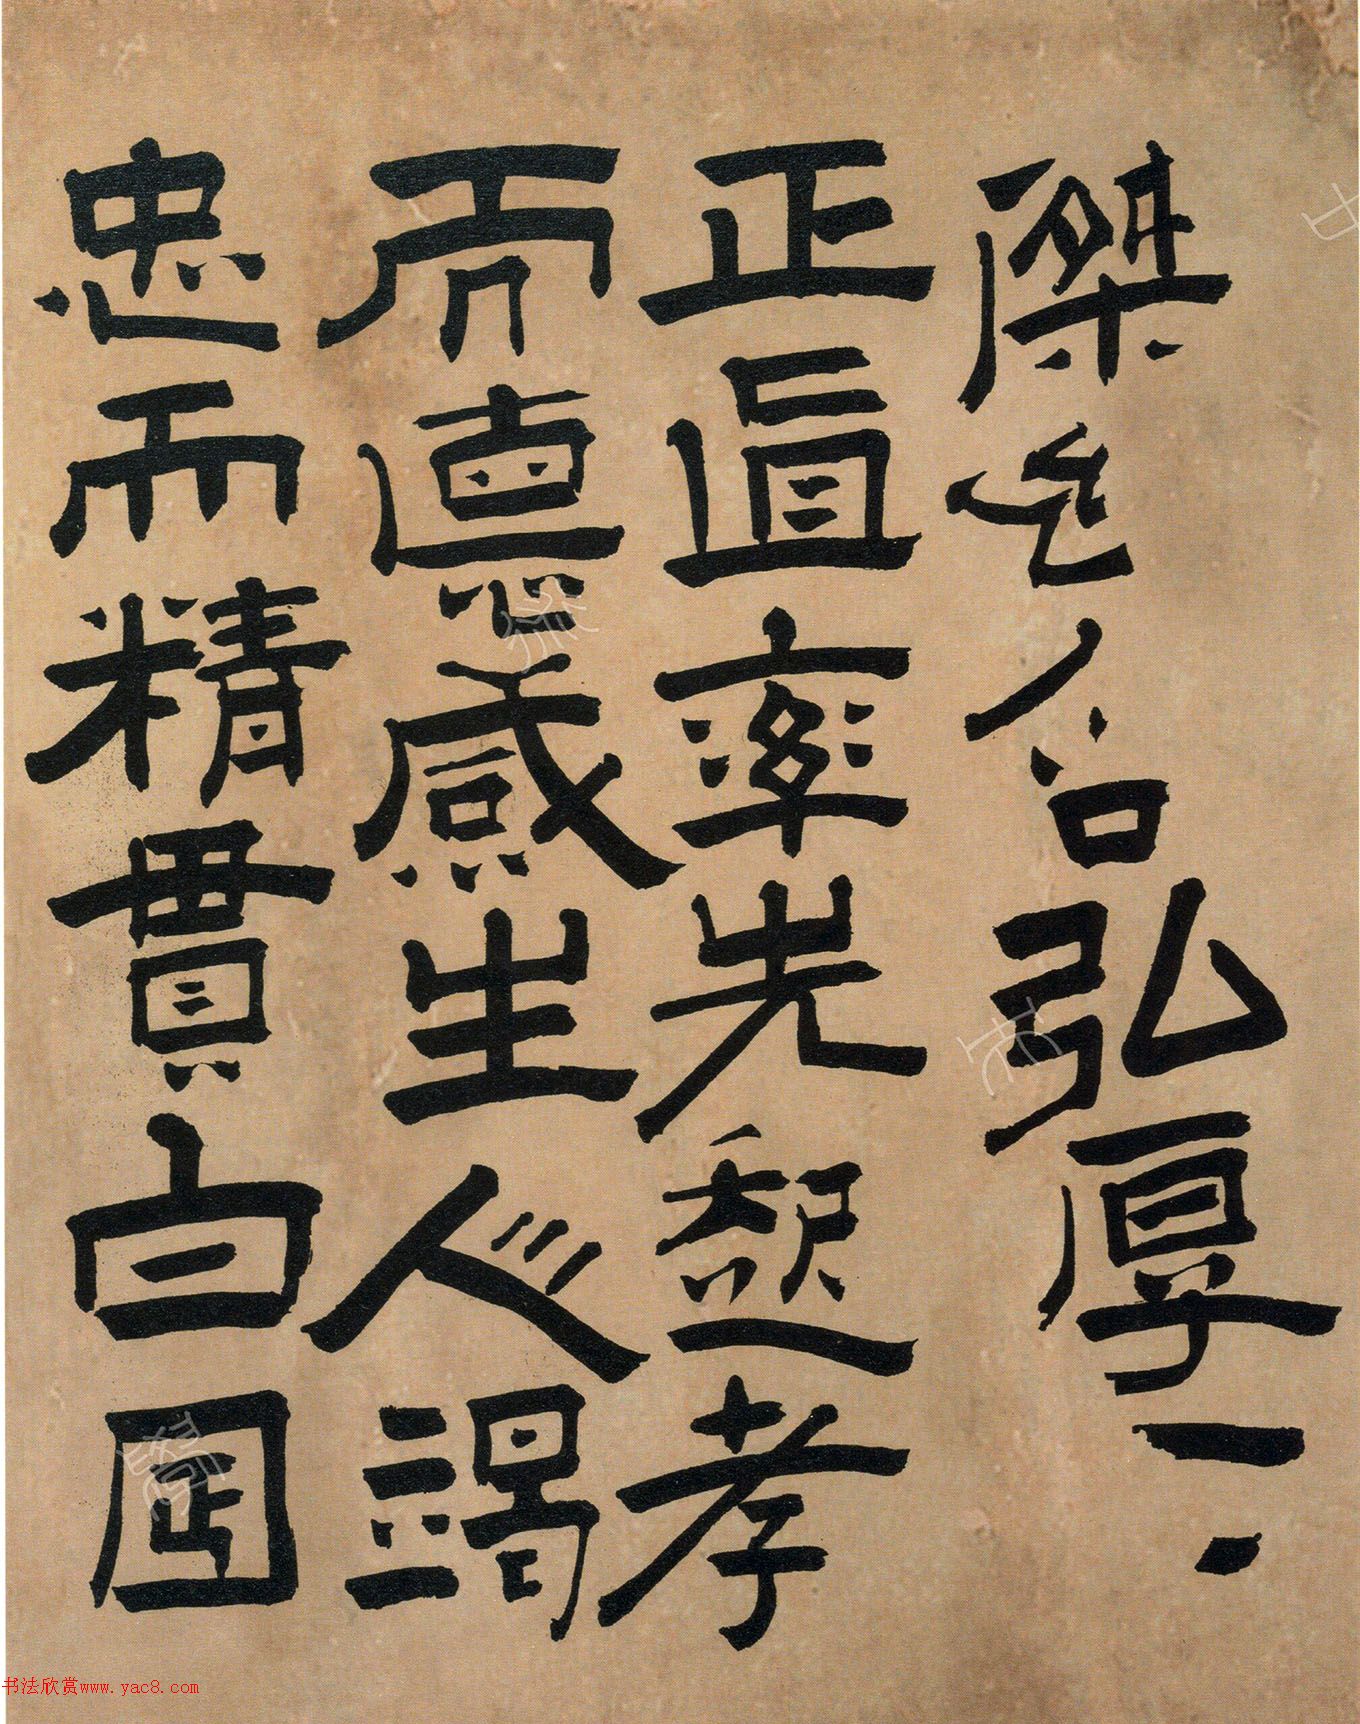 傑公弘厚
正直率先孝
而惪感生人竭
忠而精貫白囸
书法欣赏www.yac8.com